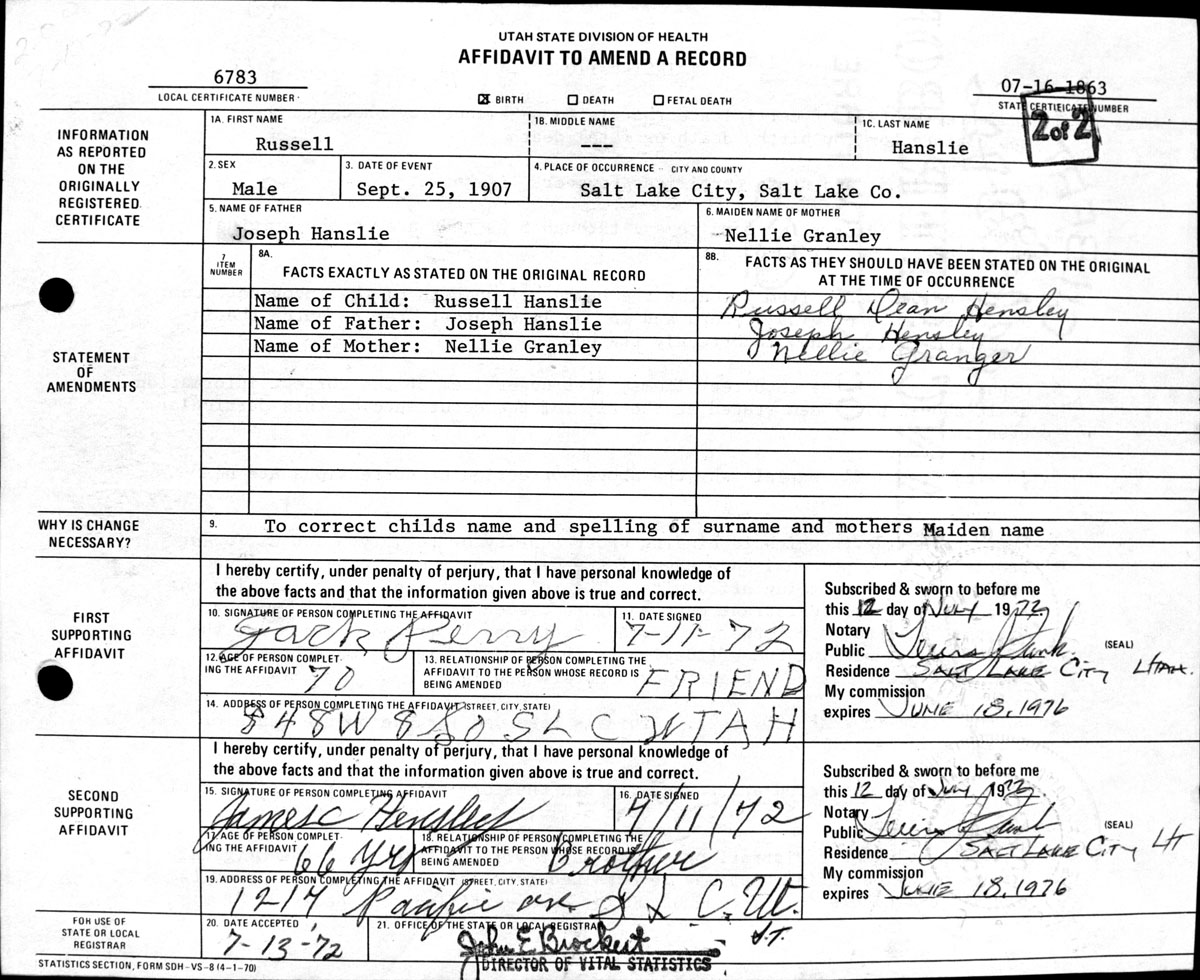 UTAH STATE DIVISION OF HEALTH
AFFIDAVIT TO AMEND A RECORD
6783
LOCAL CERTIFICATE NUMBER
☒ BIRTH ☐ DEATH ☐ FETAL DEATH
07-16-1863
STATE CERTIFICATE NUMBER
2 of 2
INFORMATION AS REPORTED ON THE ORIGINALLY REGISTERED CERTIFICATE
1A. FIRST NAME 1B. MIDDLE NAME 1C. LAST NAME
Russell --- Hanslie
2. SEX 3. DATE OF EVENT 4. PLACE OF OCCURRENCE -- CITY AND COUNTY
Male Sept. 25, 1907 Salt Lake City, Salt Lake Co.
5. NAME OF FATHER 6. MAIDEN NAME OF MOTHER
Joseph Hanslie Nellie Granley
STATEMENT OF AMENDMENTS
7 ITEM NUMBER
8A. FACTS EXACTLY AS STATED ON THE ORIGINAL RECORD
8B. FACTS AS THEY SHOULD HAVE BEEN STATED ON THE ORIGINAL AT THE TIME OF OCCURRENCE
Name of Child: Russell Hanslie Russell Dean Hensley
Name of Father: Joseph Hanslie Joseph Hensley
Name of Mother: Nellie Granley Nellie Granger
WHY IS CHANGE NECESSARY?
9. To correct childs name and spelling of surname and mothers Maiden name
FIRST SUPPORTING AFFIDAVIT
I hereby certify, under penalty of perjury, that I have personal knowledge of
the above facts and that the information given above is true and correct.
10. SIGNATURE OF PERSON COMPLETING THE AFFIDAVIT 11. DATE SIGNED
Jack Perry 7-11-72
12. AGE OF PERSON COMPLETING THE AFFIDAVIT 70
13. RELATIONSHIP OF PERSON COMPLETING THE AFFIDAVIT TO THE PERSON WHOSE RECORD IS BEING AMENDED FRIEND
14. ADDRESS OF PERSON COMPLETING THE AFFIDAVIT (STREET, CITY, STATE)
848 W 8 SO SLC UTAH
Subscribed & sworn to before me
this 12 day of July 1972
Notary
Public
(SEAL)
Residence SALT LAKE CITY UTAH
My commission
expires JUNE 18, 1976
SECOND SUPPORTING AFFIDAVIT
I hereby certify, under penalty of perjury, that I have personal knowledge of
the above facts and that the information given above is true and correct.
15. SIGNATURE OF PERSON COMPLETING AFFIDAVIT 16. DATE SIGNED
James C Hensley 7/11/72
17. AGE OF PERSON COMPLETING THE AFFIDAVIT 66 yrs
18. RELATIONSHIP OF PERSON COMPLETING THE AFFIDAVIT TO THE PERSON WHOSE RECORD IS BEING AMENDED Brother
19. ADDRESS OF PERSON COMPLETING THE AFFIDAVIT (STREET, CITY, STATE)
1217 Pacific ave S L C. Ut.
Subscribed & sworn to before me
this 12 day of July 1972
Notary
Public
(SEAL)
Residence SALT LAKE CITY UT
My commission
expires JUNE 18, 1976
FOR USE OF STATE OR LOCAL REGISTRAR
20. DATE ACCEPTED 21. OFFICE OF THE STATE OR LOCAL REGISTRAR
7-13-72 John E Brockert
DIRECTOR OF VITAL STATISTICS
STATISTICS SECTION, FORM SDH-VS-8 (4-1-70)